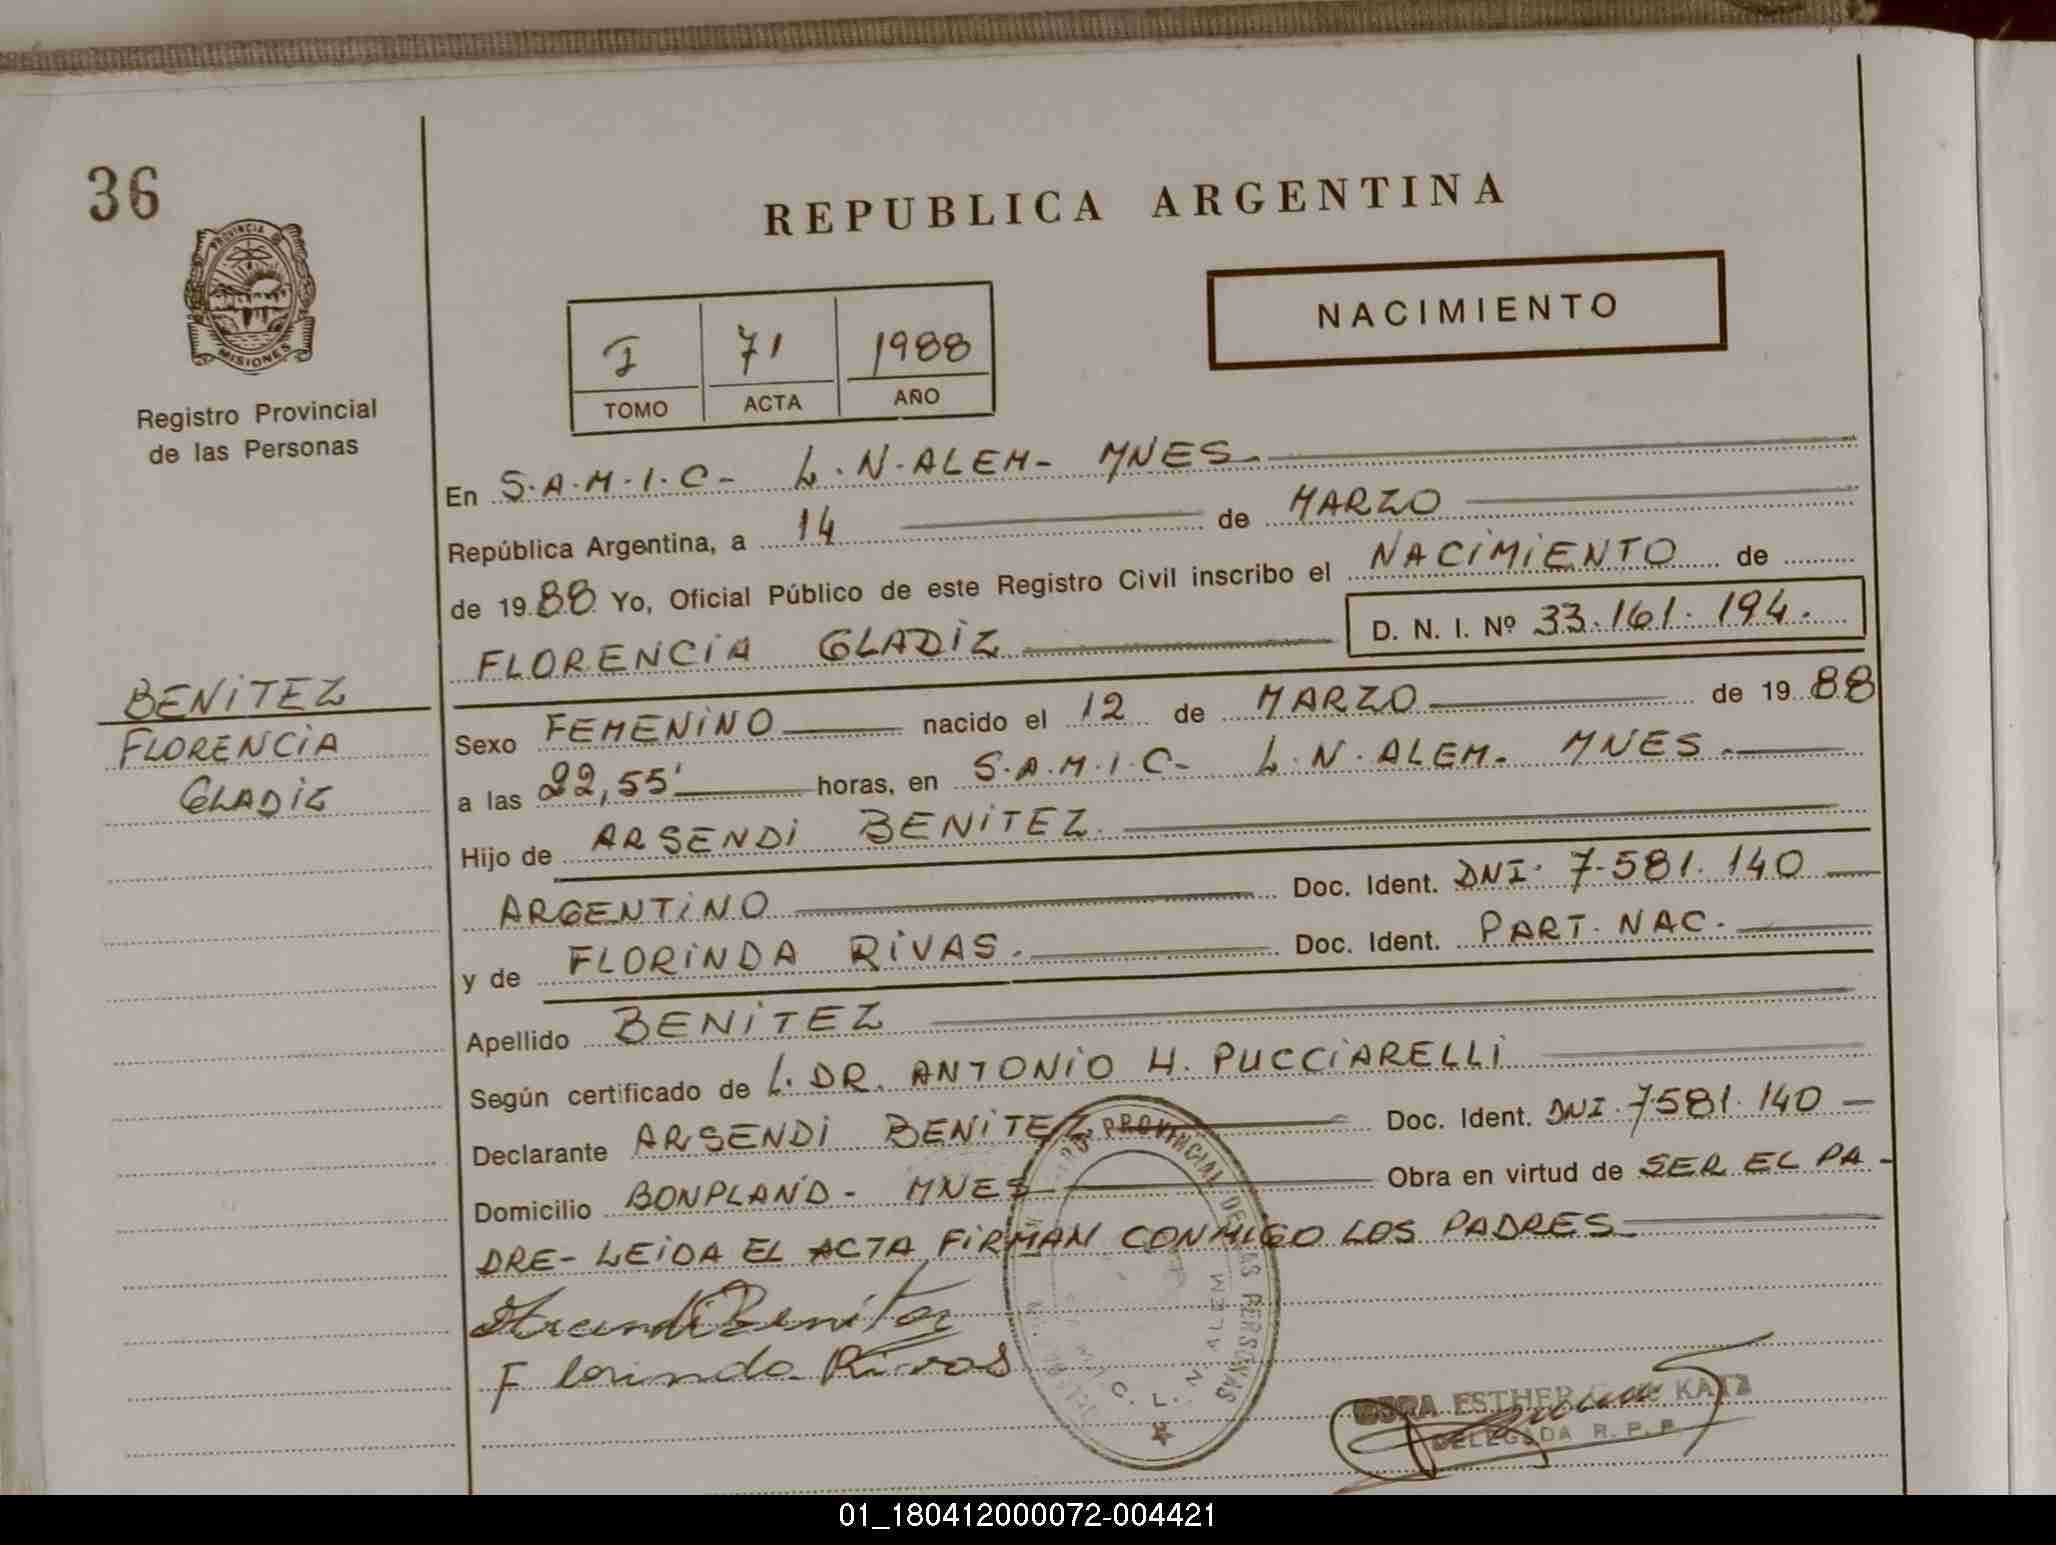 36
PROVINCIA DE
MISIONES
Registro Provincial
de las Personas
REPUBLICA ARGENTINA
NACIMIENTO
I 71 1988
TOMO ACTA AÑO
En S.A.M.I.C- L.N.ALEM- MNES-
República Argentina, a 14 de MARZO
de 1988 Yo, Oficial Público de este Registro Civil inscribo el NACIMIENTO de
FLORENCIA GLADIZ D. N. I. Nº 33.161.194.
BENITEZ
FLORENCIA
GLADIZ
Sexo FEMENINO nacido el 12 de MARZO de 1988
a las 22,55' horas, en S.A.M.I.C- L.N.ALEM- MNES.
Hijo de ARSENDI BENITEZ.
ARGENTINO Doc. Ident. DNI. 7.581.140
y de FLORINDA RIVAS. Doc. Ident. PART. NAC.
Apellido BENITEZ
Según certificado de L. DR. ANTONIO H. PUCCIARELLI
Declarante ARSENDI BENITEZ Doc. Ident. DNI. 7.581.140
Domicilio BONPLAND- MNES Obra en virtud de SER EL PA-
DRE- LEIDA EL ACTA FIRMAN CONMIGO LOS PADRES
PROVINCIAL DE LAS PERSONAS
L. N. ALEM
Arsendi Benitez
Florinda Rivas
ESTHER KATZ
DELEGADA R. P. P.
01_180412000072-004421